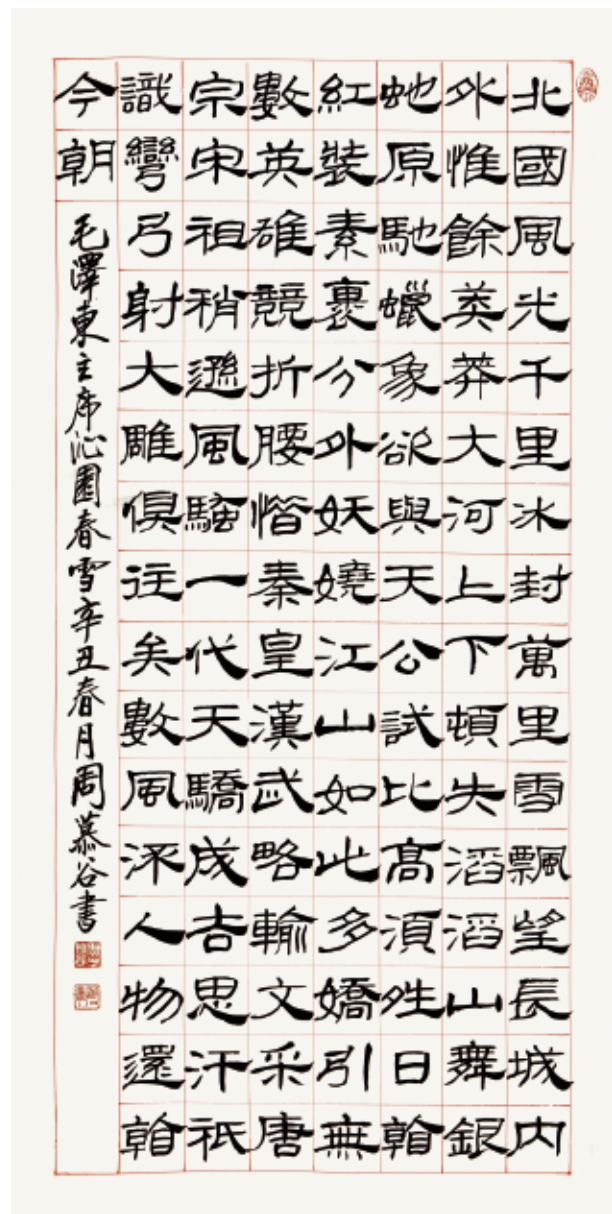 北國風光千里冰封萬里雪飄望長城內
外惟餘莽莽大河上下頓失滔滔山舞銀
虵原馳蠟象欲與天公試比高須夝日看
紅裝素裹分外妖嬈江山如此多嬌引無
數英雄競折腰惜秦皇漢武略輸文采唐
宗宋祖稍遜風騷一代天驕成吉思汗祇
識彎弓射大雕俱往矣數風流人物還看
今朝
毛澤東主席沁園春雪辛丑春月周慕谷書